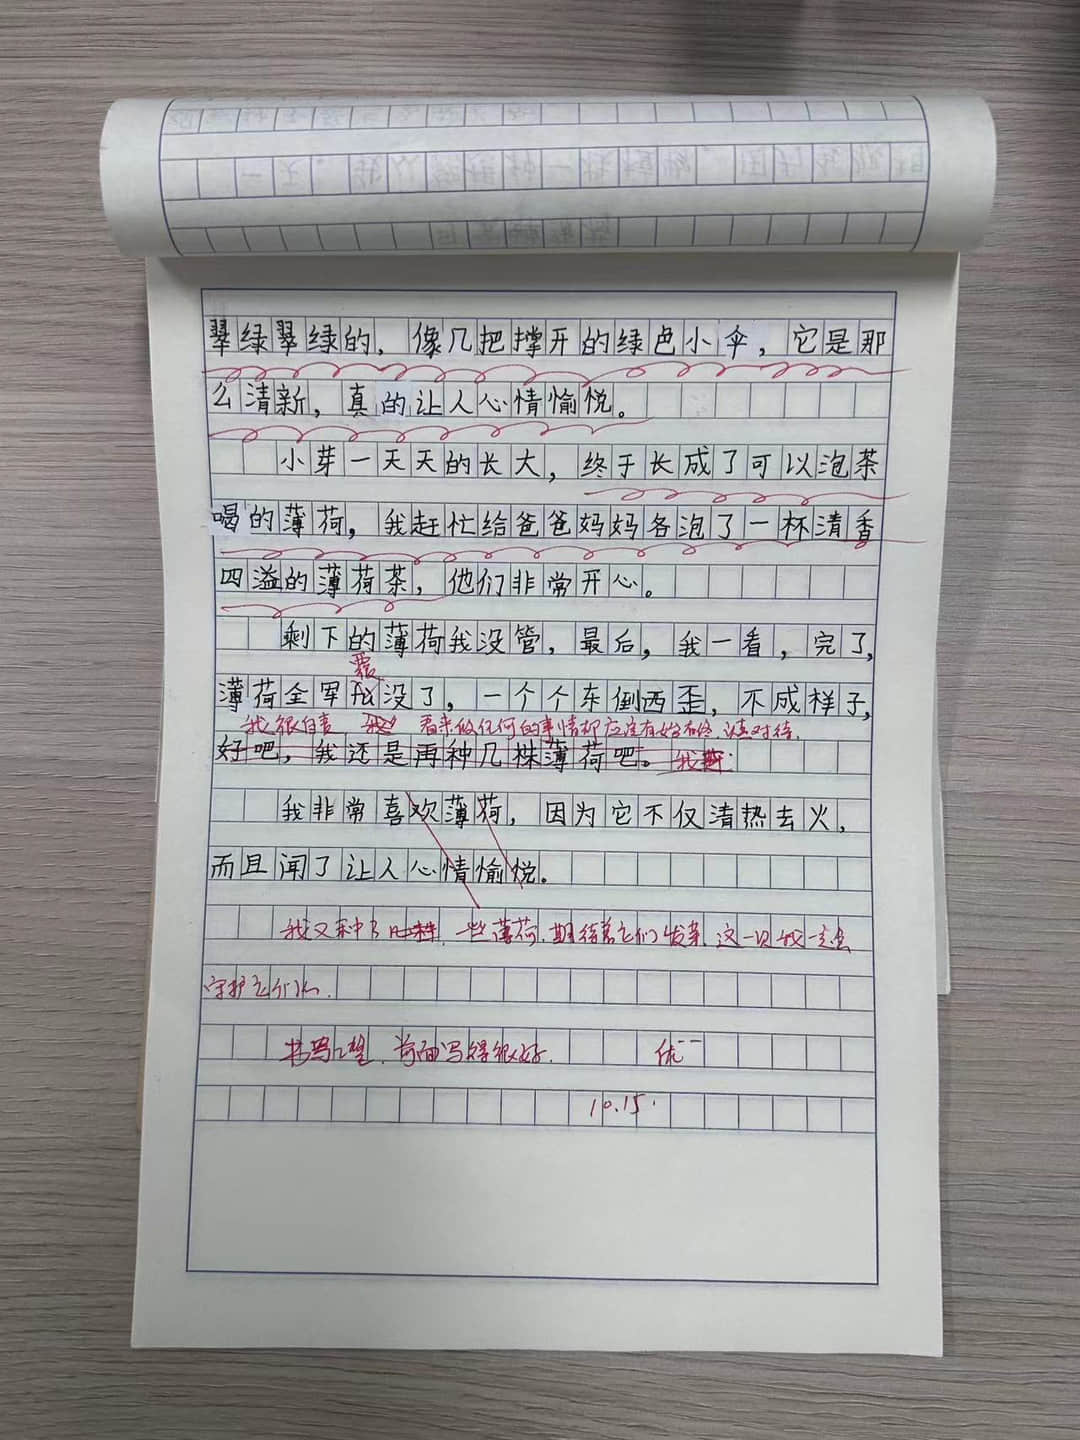 翠绿翠绿的，像几把撑开的绿色小伞，它是那
么清新，真的让人心情愉悦。
小芽一天天的长大，终于长成了可以泡茶
喝的薄荷，我赶忙给爸爸妈妈各泡了一杯清香
四溢的薄荷茶，他们非常开心。
剩下的薄荷我没管，最后，我一看，完了，
覆
薄荷全军没了，一个个东倒西歪，不成样子，
我很自责 看来做任何的事情都应该有始有终，认真对待.
好吧，我还是再种几株薄荷吧。我
我非常喜欢薄荷，因为它不仅清热去火，
而且闻了让人心情愉悦。
我又种了一些薄荷，期待着它们发芽，这一次我一定会
守护它们的.
书写工整，前面写得很好. 优--
10.15.